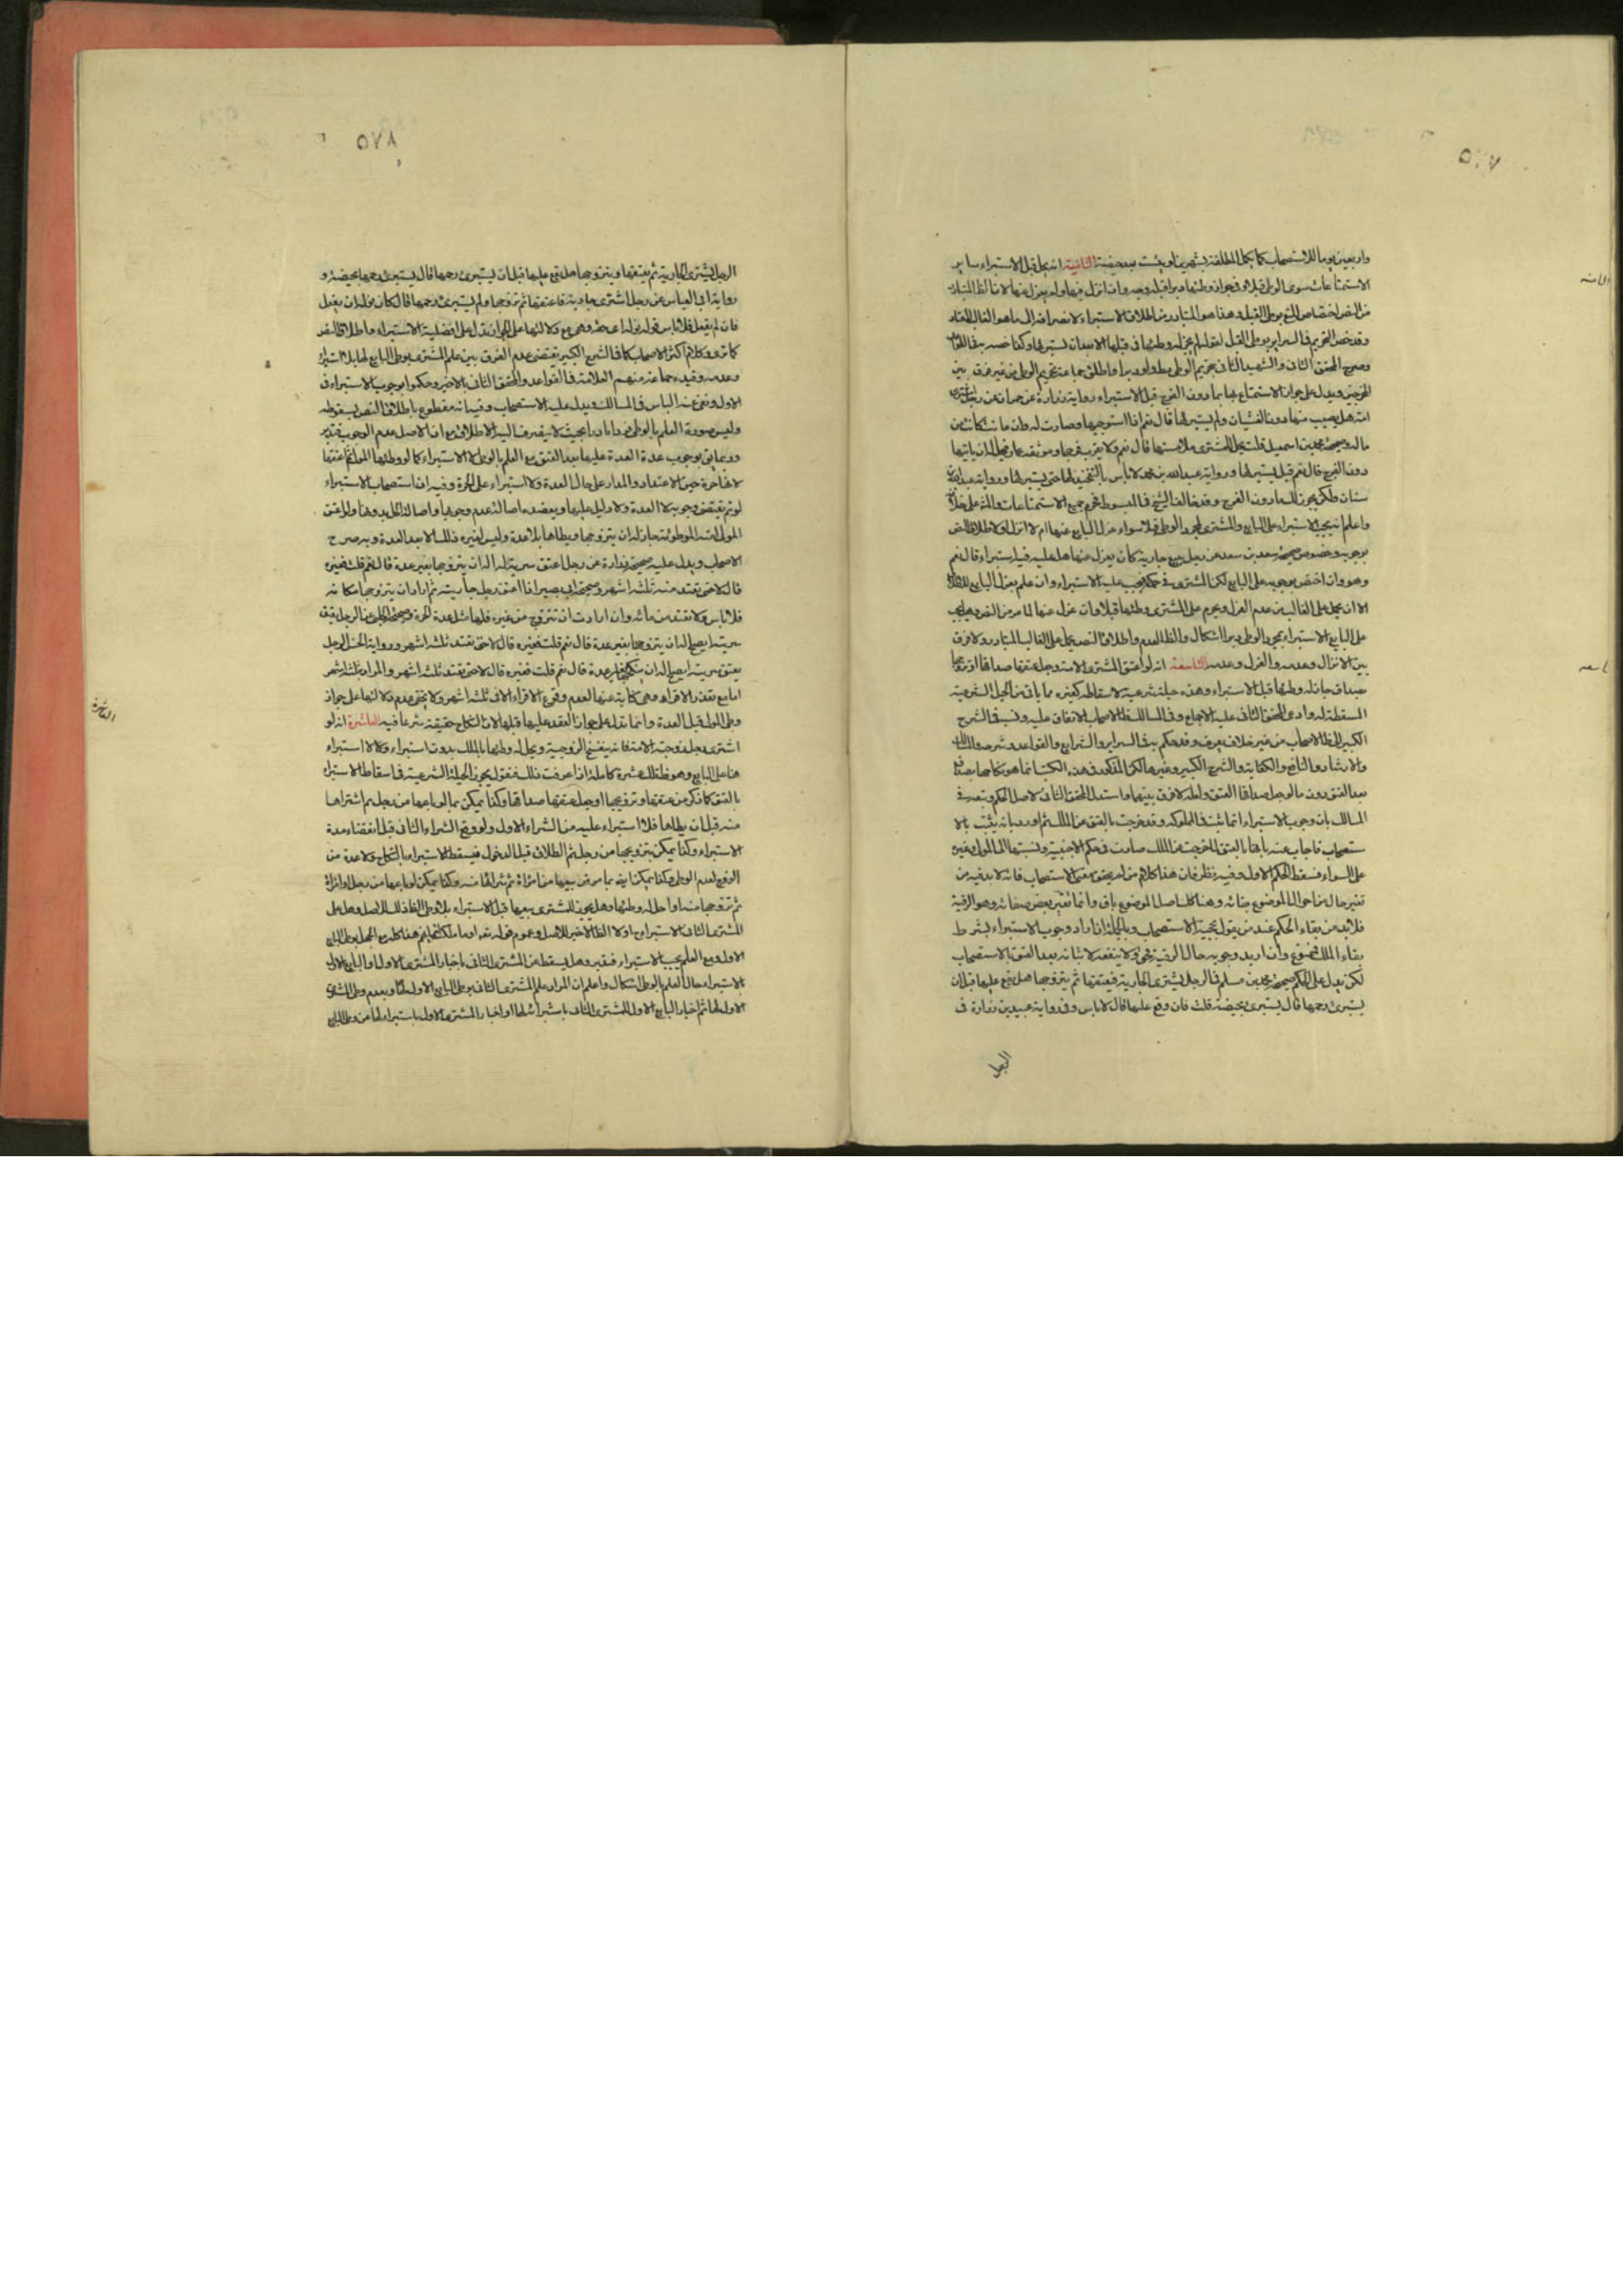 واربعين يوما للاستصحاب كما تكمل المطلقة بشهرين اويئست بعد حيضة الثامنة انه يحل قبل الاستبراء ساير
الاستمتاعات سوى الوطى قبلا وفي جواز وطئها دبرا قبله وجه وان انزل فيها ولم يعزل عنها لانه الظ المتبادر
من النص اختصاص المنع بوطى القبل وهذا هو المتبادر من اطلاق الاستبراء لانصرافه الى ما هو الغالب المعتاد
وقد خص التحريم في السراير بوطى القبل لقوله لم يجز له وطئها في قبلها الا بعد ان يستبرئها وكذا خصه به في
وصرح المحقق الثاني والشهيد الثاني بتحريم الوطى مطلقا ولو دبرا واطلق جماعة تحريم الوطى من غير فرق بين
الفرجين ويدل على جواز الاستمتاع بها بما دون الفرج قبل الاستبراء رواية زرارة عن حمران عن رجل اشترى
امة هل يصيب منها دون الغشيان ولم يستبرئها قال نعم اذا استوجبها وصارت له وان ماتت كانت من
ماله وصحيحة محمد بن اسمعيل قلت يحل للمشترى ملامستها قال نعم ولا يقرب فرجها وموثقة عمار فيحل له ان ياتيها
دون الفرج قال نعم قبل يستبرئها ورواية عبدالله بن محمد لا باس بالتفخيذ لها حتى يستبرئها ورواية عبدالله
سنان ولكن يجوز لك ما دون الفرج وقد خالف الشيخ في المبسوط فحرم جميع الاستمتاعات
واعلم انه يجب الاستبراء على البايع والمشترى بمجرد الوطى قبلا سواء عزل البايع عنها ام لا انزل ام لا لاطلاق النص
بوجوبه وخصوص صحيحة سعد بن سعد عن رجل يبيع جارية كان يعزل عنها هل عليه فيها استبراء قال نعم
وهو وان اختص بوجوبه على البايع لكن المشترى في حكمه فيجب عليه الاستبراء وان علم بعزل البايع
الا ان يحمل على الغالب من عدم العزل ويحرم على المشترى وطئها قبلا وان عزل عنها لما مر من النص وهل يجب
على البايع الاستبراء بمجرد الوطى دبرا اشكال والظ العدم واطلاق النص يحمل على الغالب المتبادر ولا فرق
بين الانزال وعدمه والعزل وعدمه التاسعة انه لو اعتق المشترى الامة وجعل عتقها صداقها او تزوجها
بصداق جاز له وطئها قبل الاستبراء وهذه حيلة شرعية لاسقاطه كغيره مما ياتى من الحيل الشرعية
المسقطة له وادعى المحقق الثاني عليه الاجماع وفي المسالك ظ الاصحاب الاتفاق عليه ونسبه في الشرح
الكبير الى ظ الاصحاب من غير خلاف يعرف وقد حكم به في السراير والشرايع والقواعد وشرحه والمسالك
والارشاد والنافع والكفاية والشرح الكبير وغيرها لكن المذكور في هذه الكتب انما هو نكاحها بصداق
بعد العتق دون ما لو جعل صداقها العتق ولعله لا فرق بينهما واستدل المحقق الثاني لاصل الحكم وتبعه في
المسالك بان وجوب الاستبراء انما يثبت في المملوكة وقد خرجت بالعتق عن الملك ثم اورد بانه يثبت بالا
ستصحاب فاجاب عنه بانها بالعتق لما خرجت عن الملك صارت في حكم الاجنبية ونسبتها الى المولى وغيره
على السواء فسقط الحكم الاول وفيه نظر فان هذا كلام من لم يحقق معنى الاستصحاب فانه لا بد فيه من
تغير حال من احوال الموضوع بقائه وهنا كذلك اصل الموضوع باق وانما تغير بعض صفاته وهو الرقية
فلا بد من بقاء الحكم عند من يقول بحجية الاستصحاب وبالجملة ان اراد وجوب الاستبراء بشرط
بقاء الملك فممنوع وان اريد وجوبه حال الرقية فحق ولا ينفعه لاثباته بعد العتق بالاستصحاب
لكن يدل على الحكم صحيحة محمد بن مسلم في الرجل يشترى الجارية فيعتقها ثم يتزوجها هل يقع عليها قبل ان
يستبرئ رحمها قال يستبرئ بحيضة قلت فان وقع عليها قال لا باس وفي رواية عبيد بن زرارة في
الرجل يشترى الجارية ثم يعتقها ويتزوجها هل يقع عليها قبل ان يستبرئ رحمها قال يستبرئ رحمها بحيضة و
رواية ابى العباس عن رجل اشترى جارية فاعتقها ثم تزوجها ولم يستبرئ رحمها قال كان نوله ان يفعل
فان لم يفعل فلا باس قوله نوله اى حقه وهى مع دلالتها على الجواز تدل على افضلية الاستبراء واطلاق النصوص
كما ترى وكلام اكثر الاصحاب كما في الشرح الكبير يقتضى عدم الفرق بين علم المشترى بوطى البايع لها بلا استبراء
وعدمه وقيده جماعة منهم العلامة في القواعد والمحقق الثاني بالاخير وحكموا بوجوب الاستبراء في
الاول ونفى عنه الباس في المسالك ويدل عليه الاستصحاب وفيه انه مقطوع باطلاق النص بسقوطه
وليس صورة العلم بالوطى فردا نادرا بحيث لا ينصرف اليه الاطلاق مع ان الاصل عدم الوجوب فتدبر
وربما يق بوجوب عدة العدة عليها بعد العتق مع العلم بالوطى لا الاستبراء كما لو وطئها المولى ثم اعتقها
لانها حرة حين الاعتداد والمدار على حال العدة ولا استبراء على الحرة وفيه ان استصحاب الاستبراء
لو تم يقتضى وجوبه لا العدة ولا دليل عليها ويعضده اصالة عدم وجوبها واصالة الحل بدونها ولو اعتق
المولى امته الموطوئة جاز له ان يتزوجها ويطاها بلا عدة وليس لغيره ذلك الا بعد العدة وبه صرح
الاصحاب ويدل عليه صحيحة زرارة عن رجل اعتق سرية له اله ان يتزوجها بغير عدة قال نعم قلت فغيره
قال لا حتى تعتد منه ثلثة اشهر وصحيحة ابى بصير اذا اعتق رجل جاريته ثم اراد ان يتزوجها مكانه
فلا باس ولا تعتد من مائه وان ارادت ان تتزوج من غيره فلها مثل عدة الحرة وصحيحة الحلبى عن الرجل يعتق
سريته ايصلح له ان يتزوجها بغير عدة قال نعم قلت فغيره قال لا حتى تعتد ثلثة اشهر ورواية الحسن الرجل
يعتق سريته ايصلح له ان يتزوجها بغير عدة قال نعم قلت فغيره قال لا حتى تعتد ثلثة اشهر والمراد بثلثة اشهر
اما مع تعذر الاقراء وهى كناية عنها لعدم وقوع الاقراء الا في ثلثة اشهر ولا يخفى عدم دلالتها على جواز
وطى المولى قبل العدة وانما تدل على جواز العقد عليها قبلها الا ان النكاح حقيقة شرعا فيه العاشرة انه لو
اشترى رجل زوجته الامة فانه ينفسخ الزوجية ويحل له وطئها بالملك بدون استبراء ولا استبراء
هنا على البايع وهو ظ تلك عشرة كاملة اذا عرفت ذلك فنقول يجوز الحيلة الشرعية في اسقاط الاستبراء
بالعتق كما ذكر من عتقها وتزويجها او جعل عتقها صداقها وكذا يمكن بما لو باعها من رجل ثم اشتراها
منه قبل ان يطاها فلا استبراء عليه من الشراء الاول ولو وقع الشراء الثاني قبل انقضاء مدة
الاستبراء وكذا يمكن بتزويجها من رجل ثم الطلاق قبل الدخول فيسقط الاستبراء بالنكاح ولا عدة من
الزوج لعدم الوطى وكذا يمكن ايضا بما مر من بيعها من امراة ثم شرائها منه وكذا يمكن لو باعها من رجل او امراة
ثم تزوجها منه او احل له وطئها وهل يجوز للمشترى بيعها قبل الاستبراء بلا وطى الظ ذلك للاصل وهل على
المشترى الثاني الاستبراء ايضا او لا الظ الاخير للاصل وعموم قوله تعالى او ما ملكت ايمانهم هذا كله مع الجهل بوطى البايع
الاول ومع العلم يجب الاستبراء فتدبر وهل يسقط عن المشترى الثاني باخبار المشترى الاول او البايع الاول
بالاستبراء حال العلم بالوطى اشكال واعلم ان المراد علم المشترى الثاني بوطى البايع الاول لها وبعدم وطى المشترى
الاول لها ثم اخبار البايع الاول للمشترى الثاني باستبرائها او اخبار المشترى الاول باستبرائها من وطى البايع